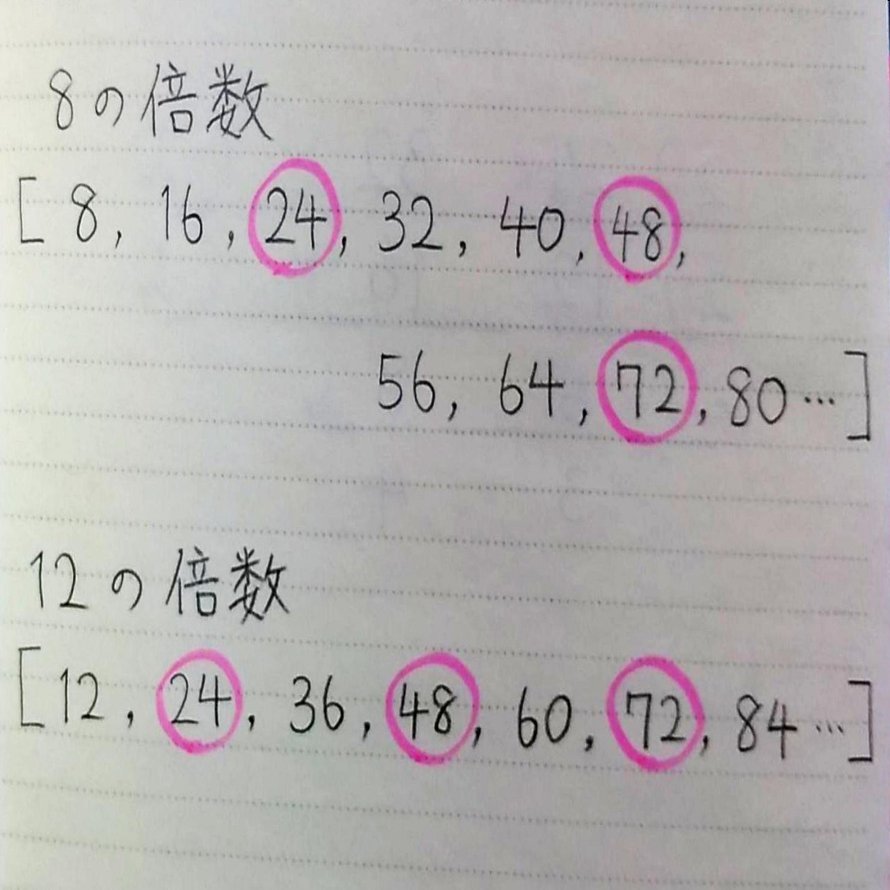 8の倍数
[ 8, 16, 24, 32, 40, 48,
56, 64, 72, 80 … ]
12の倍数
[ 12, 24, 36, 48, 60, 72, 84 … ]